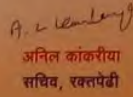 अनिल कांकरीया
सचिव, रक्तपेढी